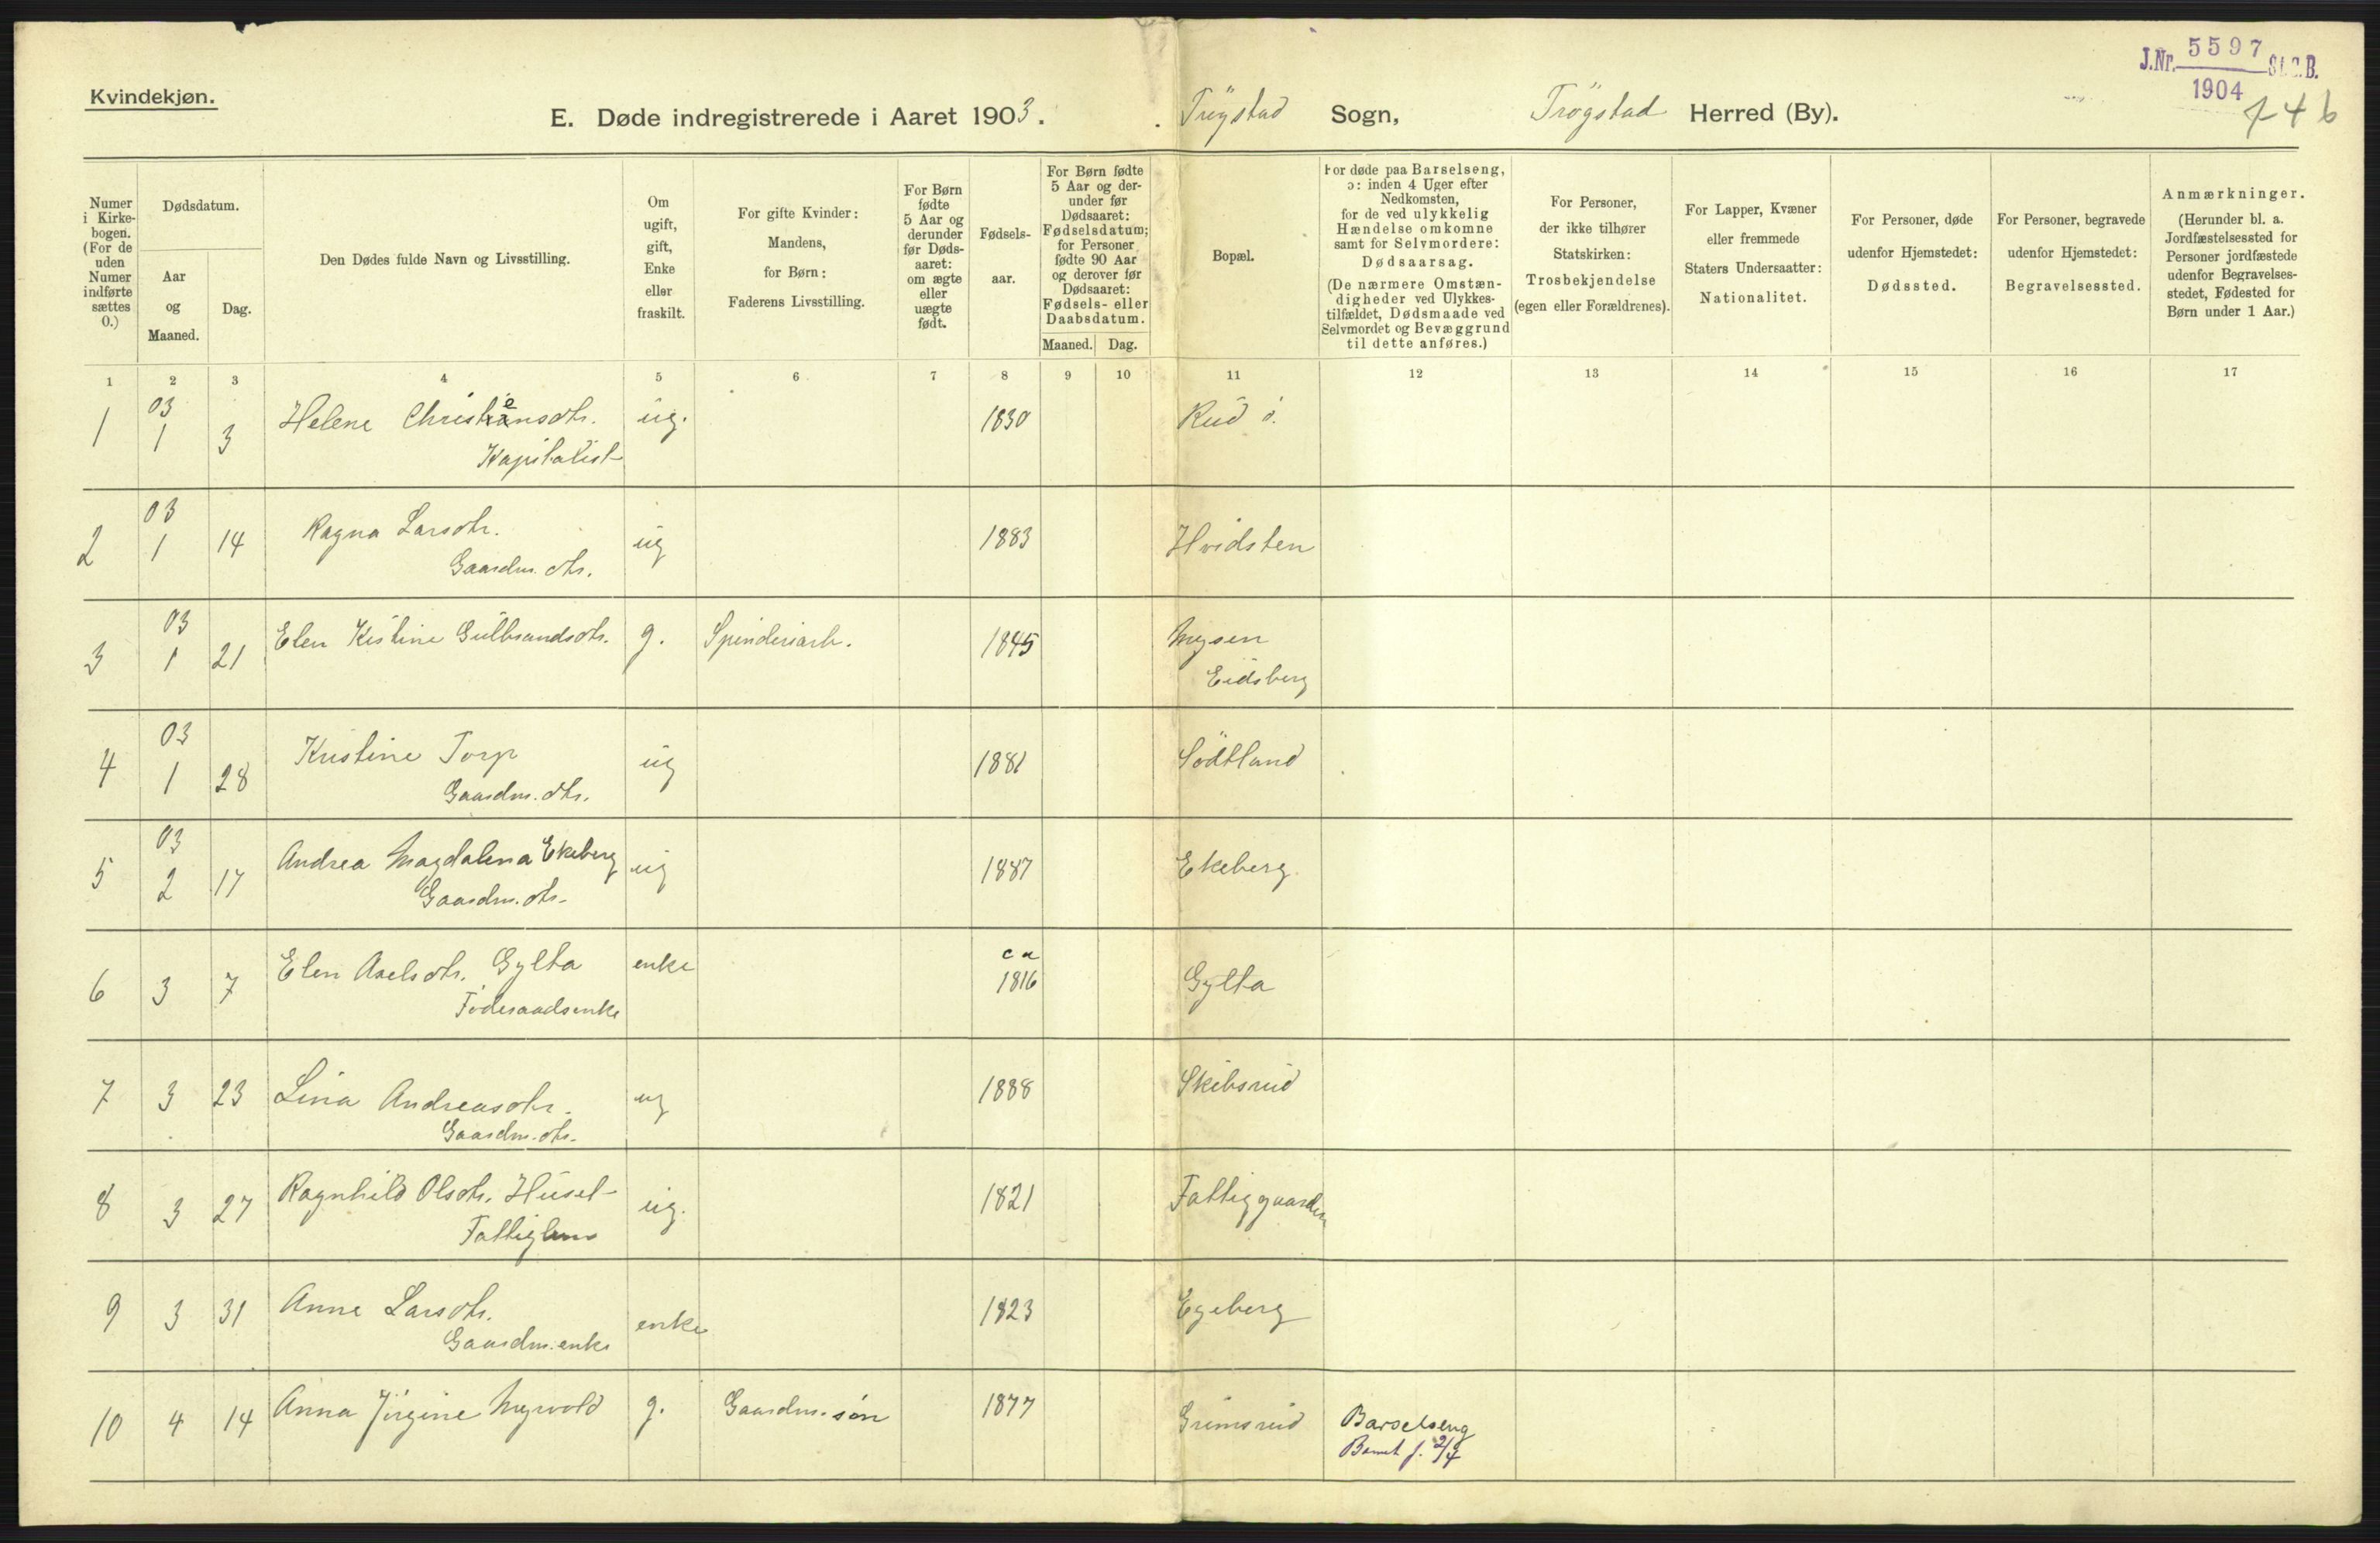 J.Nr. 5597 St.C.B.
1904
746
Kvindekjøn.
E. Døde indregistrerede i Aaret 1903. Trygstad Sogn, Trøgstad Herred (By).
Numer i Kirkebogen. (For de uden Numer indførte sættes 0.)
Dødsdatum.
Aar og Maaned.
Dag.
Den Dødes fulde Navn og Livsstilling.
Om ugift, gift, Enke eller fraskilt.
For gifte Kvinder: Mandens, for Børn: Faderens Livsstilling.
For Børn fødte 5 Aar og derunder før Dødsaaret: om ægte eller uægte født.
Fødselsaar.
For Børn fødte 5 Aar og derunder før Dødsaaret: Fødselsdatum; for Personer fødte 90 Aar og derover før Dødsaaret: Fødsels- eller Daabsdatum.
Maaned. Dag.
Bopæl.
For døde paa Barselseng, ɔ: inden 4 Uger efter Nedkomsten, for de ved ulykkelig Hændelse omkomne samt for Selvmordere: Dødsaarsag.
(De nærmere Omstændigheder ved Ulykkestilfældet, Dødsmaade ved Selvmordet og Bevæggrund til dette anføres.)
For Personer, der ikke tilhører Statskirken: Trosbekjendelse (egen eller Forældrenes).
For Lapper, Kvæner eller fremmede Staters Undersaatter: Nationalitet.
For Personer, døde udenfor Hjemstedet: Dødssted.
For Personer, begravede udenfor Hjemstedet: Begravelsessted.
Anmærkninger.
(Herunder bl. a. Jordfæstelsessted for Personer jordfæstede udenfor Begravelsesstedet, Fødested for Børn under 1 Aar.)
1 2 3 4 5 6 7 8 9 10 11 12 13 14 15 16 17
1 03 1 3 Helene Christensdtr. ug. 1830 Rud ö.
Kapitalist
2 03 1 14 Ragna Larsdtr. ug 1883 Hvidsten
Gaardm. dtr.
3 03 1 21 Elen Kristine Gulbrandsdtr. g. Spinderiarb. 1845 Mysen
Eidsberg
4 03 1 28 Kristine Torp ug 1881 Södtland
Gaardm. dtr.
5 03 2 17 Andrea Magdalena Ekeberg ug 1887 Ekeberg
Gaardm. dtr.
6 3 7 Elen Axelsdtr. Gylta enke ca 1816 Gylta
Föderaadsenke
7 3 23 Lina Andreasdtr. ug 1888 Skibsrud
Gaardm. dtr.
8 3 27 Ragnhild Olsdtr. Husel ug. 1821 Fattiggaarden
Fattiglem
9 3 31 Anne Larsdtr. enke 1823 Egeberg
Gaardm. enke
10 4 14 Anna Jörgine Myrvold g. Gaardm. sön 1877 Grimsrud Barselseng
Barnet f. 2/4